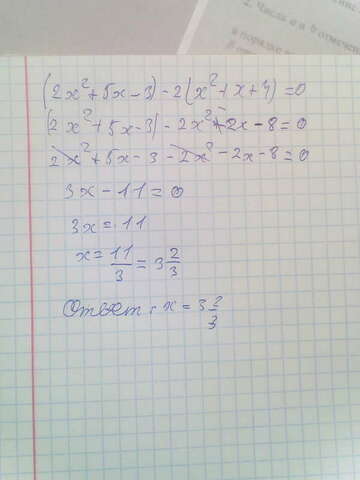 2. Числа a и b отмечен
в порядке
(2x²+5x-3)-2(x²+x+4)=0
(2x²+5x-3)-2x²-2x-8=0
2x²+5x-3-2x²-2x-8=0
3x-11=0
3x=11
x=11/3=3 2/3
Ответ: x=3 2/3